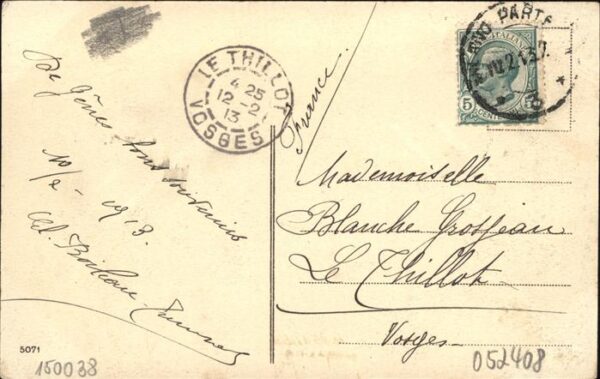 De Gênes bons souvenirs
10/2 1913.
Ad. Boileau
LE THILLOT
4 25
12-2
13
VOSGES
PARTE
POSTE ITALIANE
5 CENTESIMI 5
France.
Mademoiselle
Blanche Grosjean
Le Thillot
Vosges
5071
150038
052408